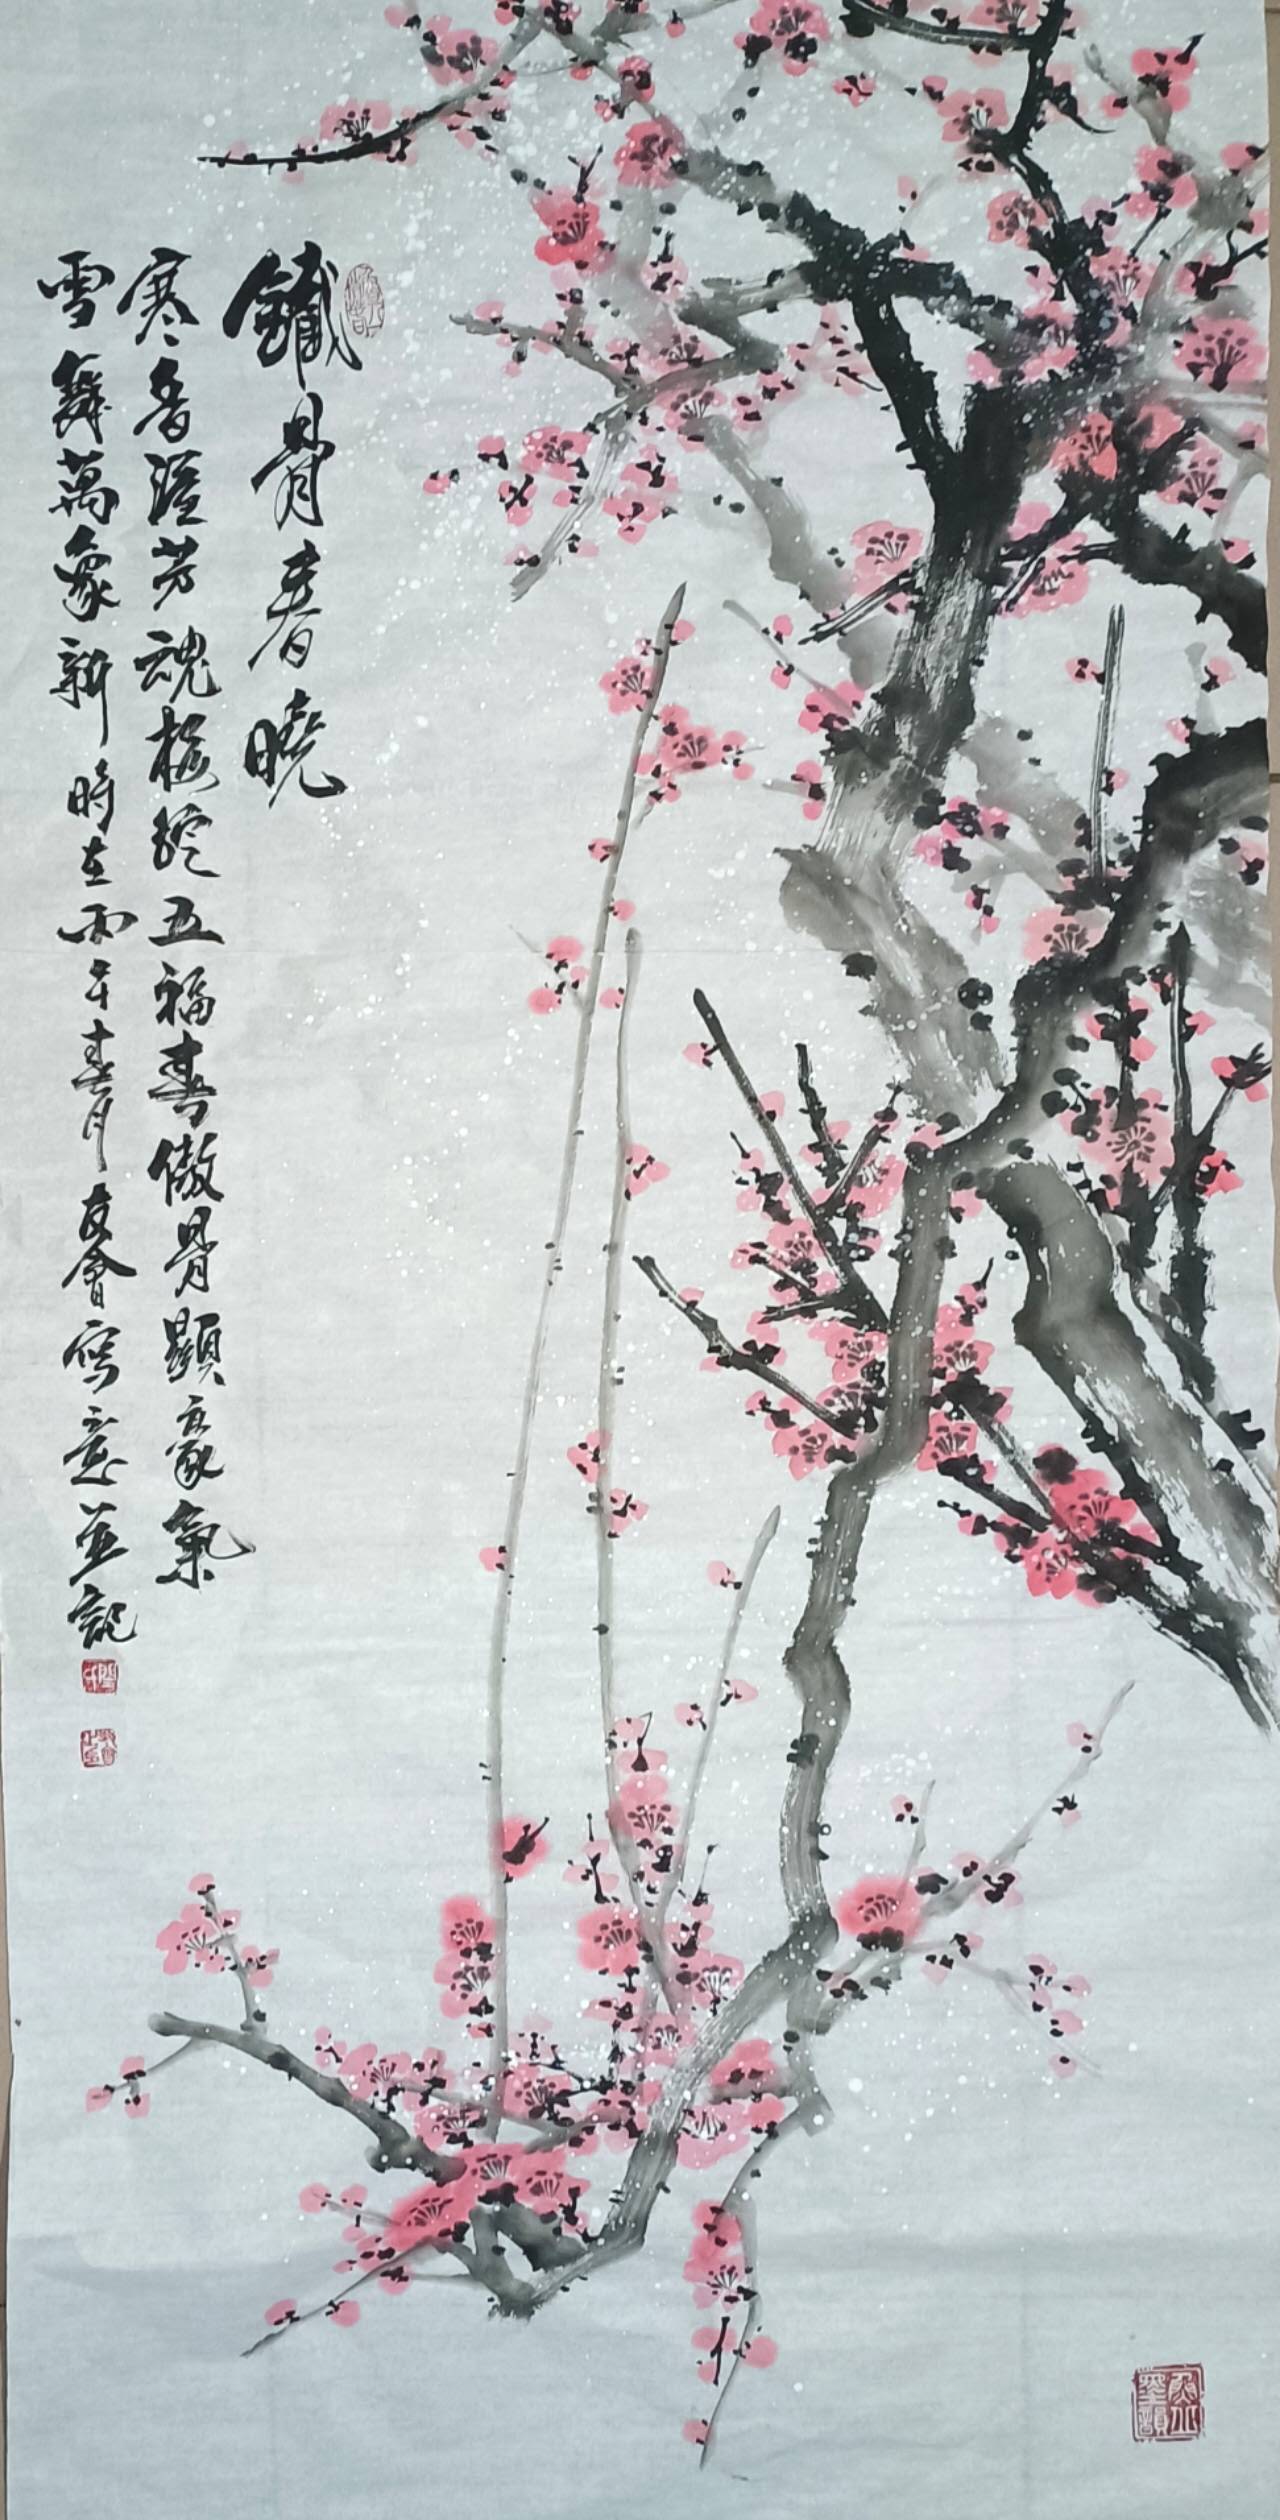 鐵骨春曉
寒香溢芳魂梅綻五福春傲骨顯豪氣
雪舞萬象新時在丙午春月友會寫意並記